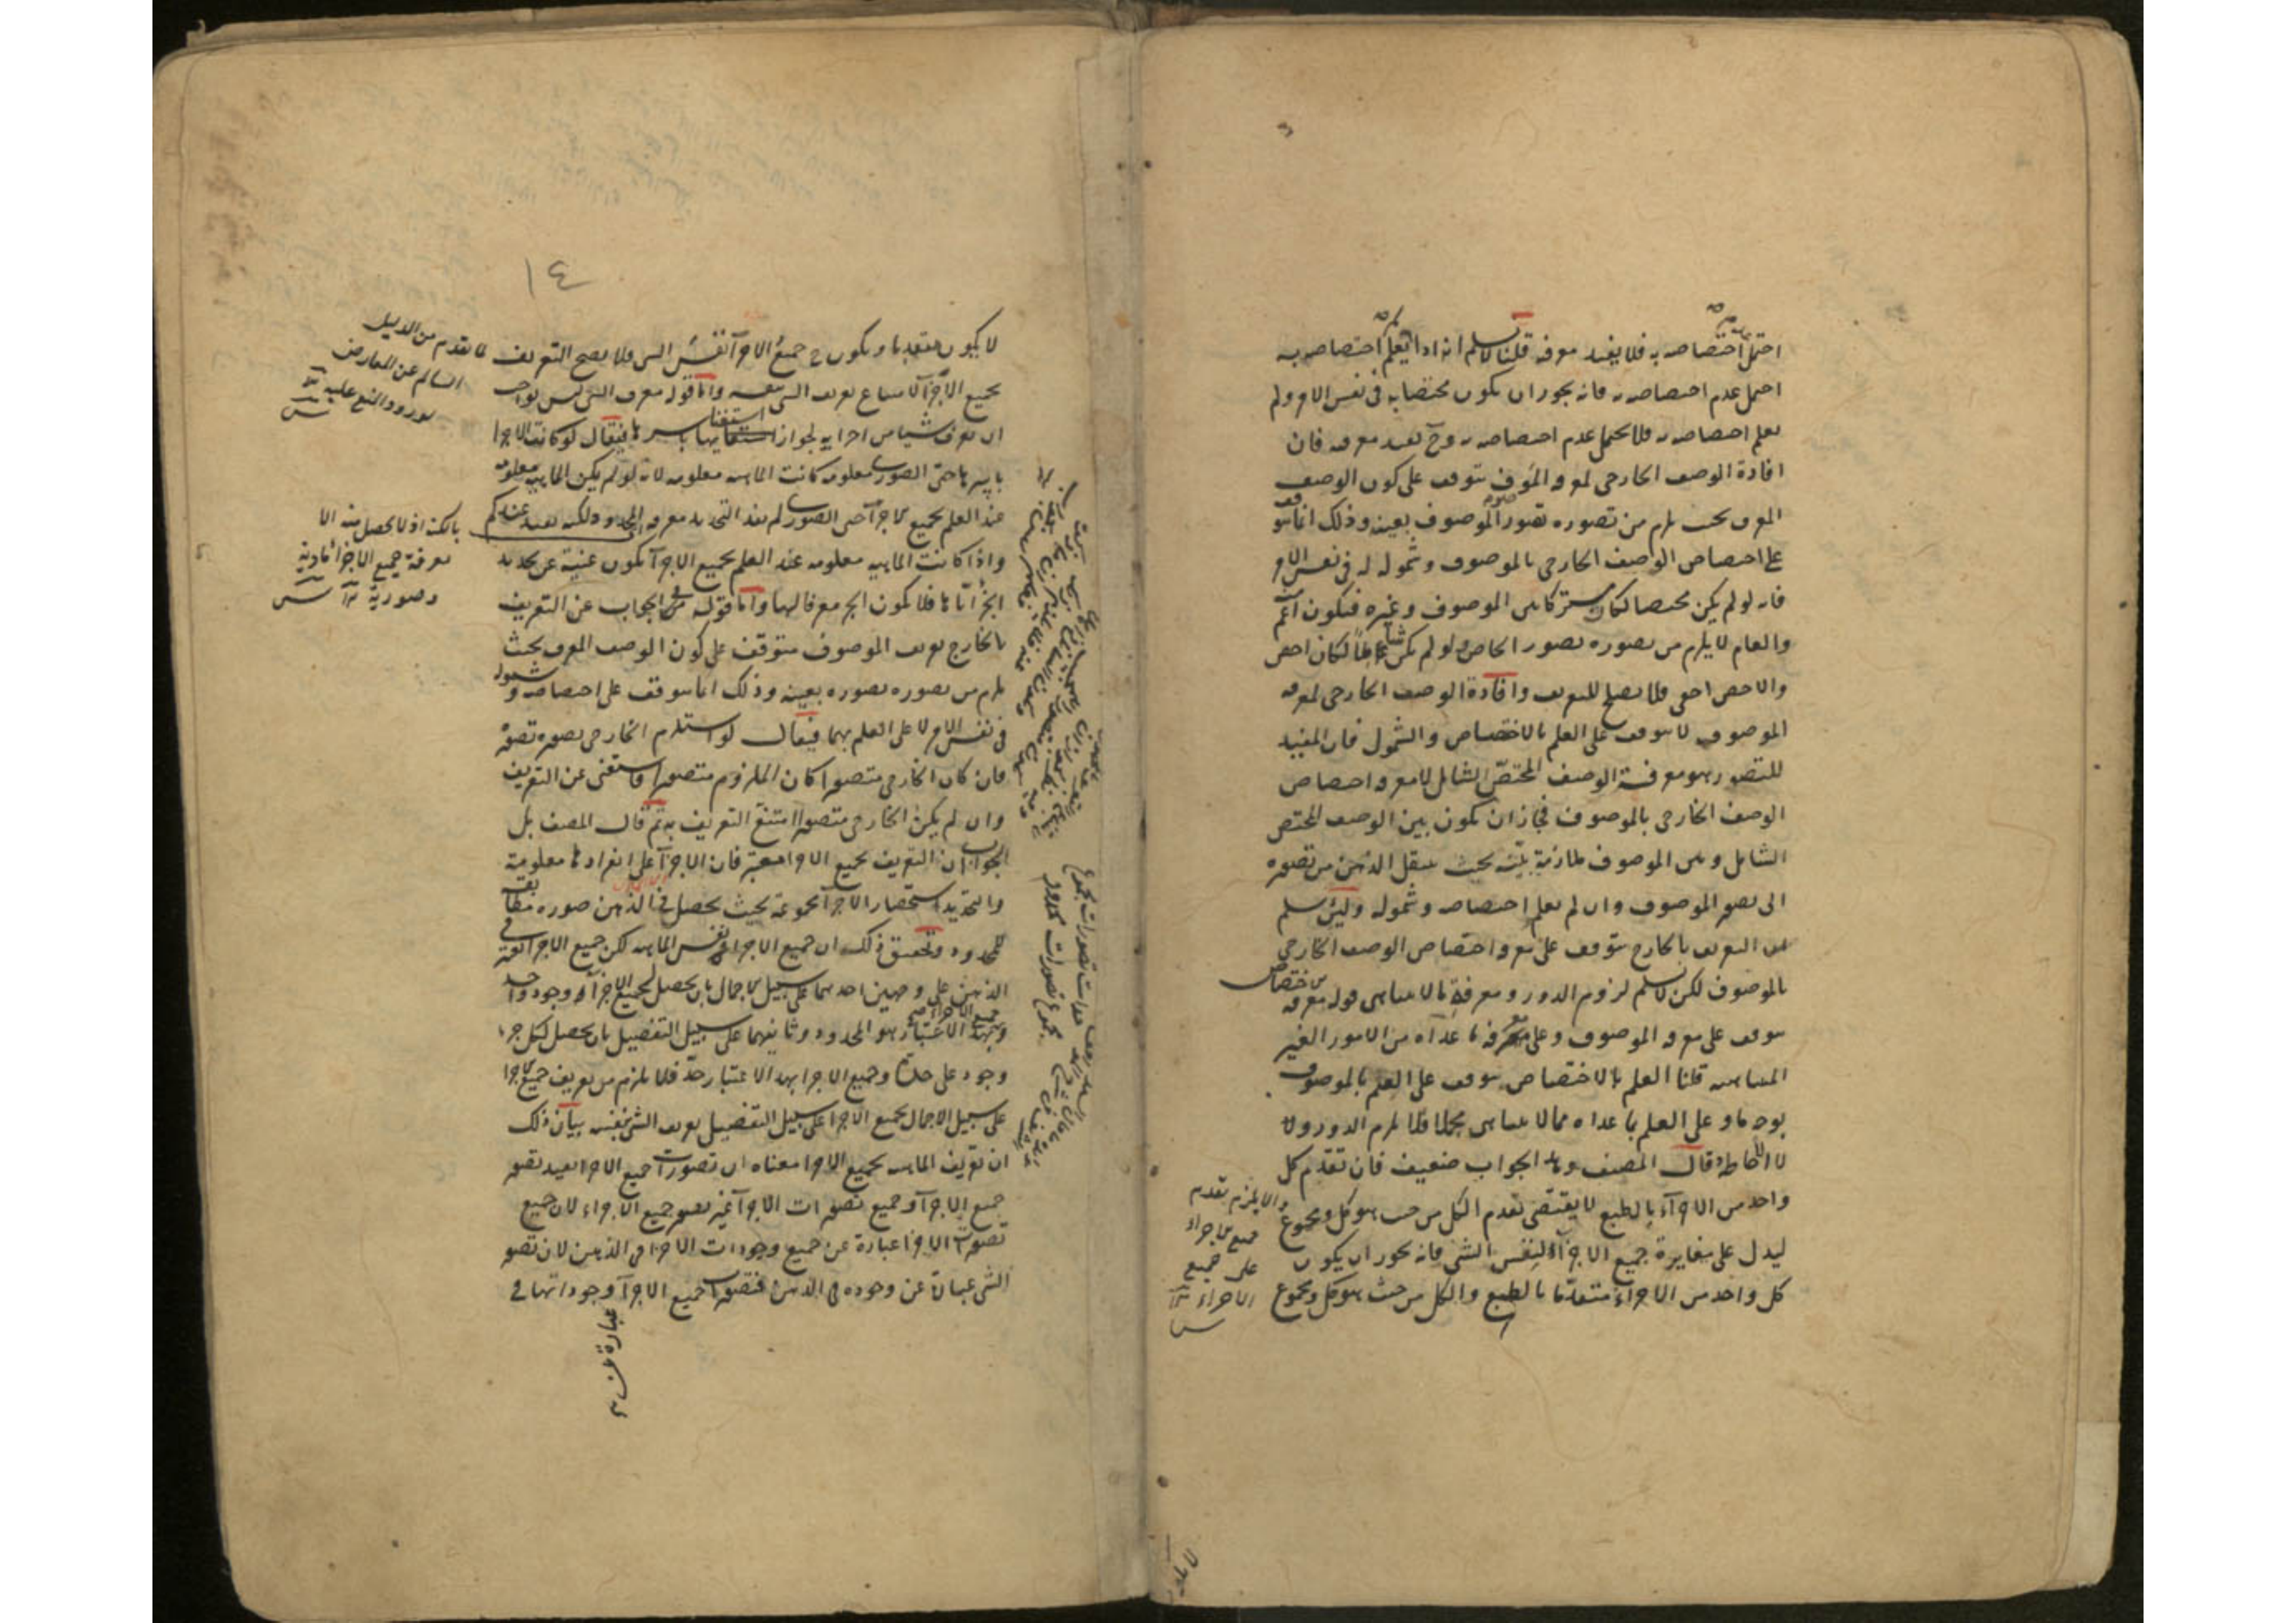 احتمل اختصاصه به فلا يفيد معرفه قلنا لا نسلم انه اذا لم يعلم اختصاصه به
احتمل عدم اختصاصه به فانه يجوز ان يكون مختصا به فى نفس الامر ولم
يعلم اختصاصه به فلا يحتمل عدم اختصاصه به وح يفيد معرفه فان
افادة الوصف الخارجى لمعرفه الموصوف يتوقف على كون الوصف
المعرف بحيث يلزم من تصوره تصور الموصوف بعينه وذلك انما يتوقف
على اختصاص الوصف الخارجى بالموصوف وشموله له فى نفس الامر
فانه لو لم يكن مختصا لكان مشتركا بين الموصوف وغيره فيكون اعم
والعام لا يلزم من تصوره تصور الخاص ولو لم يكن شاملا لكان اخص
والاخص اخفى فلا يصلح للتعريف وافادة الوصف الخارجى لمعرفه
الموصوف لا يتوقف على العلم بالاختصاص والشمول فان المفيد
للتصور هو معرفة الوصف المختص الشامل لا معرفه اختصاص
الوصف الخارجى بالموصوف فجاز ان يكون بين الوصف المختص
الشامل وبين الموصوف ملازمة بينة بحيث ينتقل الذهن من تصوره
الى تصور الموصوف وان لم يعلم اختصاصه وشموله ولئن سلم
ان التعريف بالخارج يتوقف على معرفه اختصاص الوصف الخارجى
بالموصوف لكن لا نسلم لزوم الدور ومعرفة ما لا يتناهى قوله معرفه اختصاص
يتوقف على معرفه الموصوف وعلى معرفه ما عداه من الامور الغير
المتناهيه قلنا العلم بالاختصاص يتوقف على العلم بالموصوف
بوجه ما وعلى العلم بما عداه مما لا يتناهى مجملا فلا يلزم الدور ولا
الاحاطة قال المصنف وهذا الجواب ضعيف فان تقدم كل
واحد من الاجزآء بالطبع لا يقتضى تقدم الكل من حيث هو كل ومجموع
ليدل على مغايرة جميع الاجزآء لنفس الشى فانه يجوز ان يكون
كل واحد من الاجزاء متقدما بالطبع والكل من حيث هو كل ومجموع
والا يلزم تقدم
جميع الاجزاء
على جميع
الاجزاء
١٤
لا يكون متقدما ويكون ح جميع الاجزآ نفس الشى فلا يصح التعريف
بجميع الاجزآ لامتناع تعريف الشى بنفسه واما قوله معرف الشى ليس بواجب
ان يعرف شيا من اجزايه لجواز استغنايها باسرها فيقال لو كانت الاجزا
باسرها حتى الصورى معلومه كانت الماهيه معلومه لانه لو لم يكن الماهيه معلومه
عند العلم بجميع الاجزآ حتى الصورى لم يفد التحديد معرفه المحدود ولكنه يفيد عندكم
واذا كانت الماهيه معلومه عند العلم بجميع الاجزآ تكون غنية عن تحديد
اجزائها فلا يكون الجزء معرفا لها واما قوله فى الجواب عن التعريف
بالخارج تعريف الموصوف متوقف على كون الوصف المعرف بحيث
يلزم من تصوره تصوره بعينه وذلك انما يتوقف على اختصاصه وشموله
فى نفس الامر لا على العلم بهما فيقال لو استلزم الخارجى تصوره تصوره
فان كان الخارجى متصورا كان الملزوم متصورا فاستغنى عن التعريف
وان لم يكن الخارجى متصورا امتنع التعريف به ثم قال المصنف بل
الجواب ان التعريف بجميع الاجزا معتبر فان الاجزآ على انفرادها معلومة
والتحديد استحضار الاجزآ مجموعة بحيث يحصل فى الذهن صوره مطابقه
للمحدود وتحقيق ذلك ان جميع الاجزا نفس الماهيه لكن جميع الاجزا يقع فى
الذهن على وجهين احدهما على سبيل الاجمال بان يحصل لجميع الاجزآء وجود واحد
وبهذا الاعتبار هو المحدود وثانيهما على سبيل التفصيل بان يحصل لكل جزء
وجود على حدة وجميع الاجزا بهذا الاعتبار حد فلا يلزم من تعريف جميع الاجزا
على سبيل الاجمال بجميع الاجزا على سبيل التفصيل تعريف الشى بنفسه بيان ذلك
ان تعريف الماهيه بجميع الاجزا معناه ان تصورات جميع الاجزا يفيد تصور
جميع الاجزآ وجميع تصورات الاجزآ غير تصور جميع الاجزاء لان جميع
تصورات الاجزا عبارة عن جميع وجودات الاجزا فى الذهن لان تصور
الشى عبارة عن وجوده فى الذهن فتصورات جميع الاجزآ وجوداتها فى
لما تقدم من الدليل
السالم عن المعارض
لورود المنع عليه
بالكنه اذ لا يحصل منه الا
معرفة جميع الاجزا مادية
وصورية